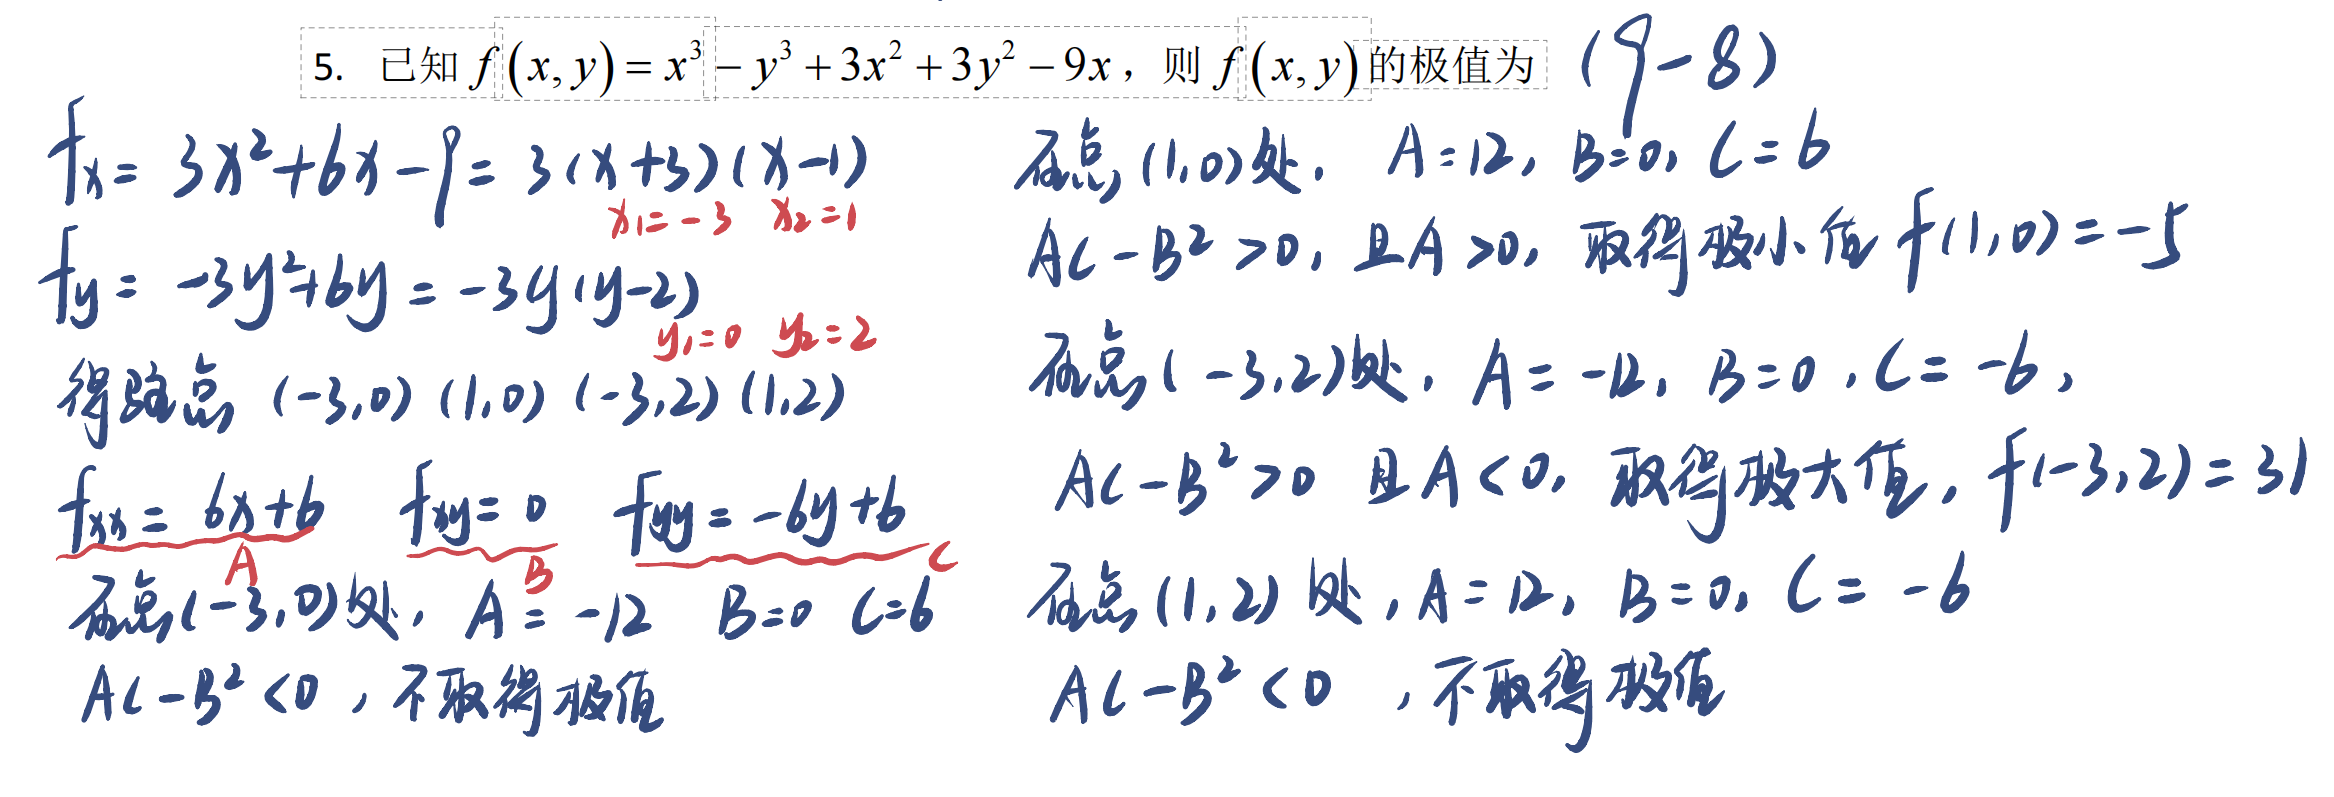 5. 已知 f(x,y)=x³-y³+3x²+3y²-9x，则 f(x,y) 的极值为 (9-8)
fx = 3x²+6x-9 = 3(x+3)(x-1)
x₁=-3 x₂=1
fy = -3y²+6y = -3y(y-2)
y₁=0 y₂=2
得驻点 (-3,0) (1,0) (-3,2) (1,2)
fxx = 6x+6 fxy = 0 fyy = -6y+6
A B C
在点(-3,0)处, A = -12 B=0 C=6
AC-B²<0, 不取得极值
在点(1,0)处. A=12, B=0, C=6
AC-B²>0, 且A>0, 取得极小值 f(1,0)=-5
在点(-3,2)处, A=-12, B=0, C=-6,
AC-B²>0 且A<0, 取得极大值, f(-3,2)=31
在点(1,2)处, A=12, B=0, C=-6
AC-B²<0, 不取得极值